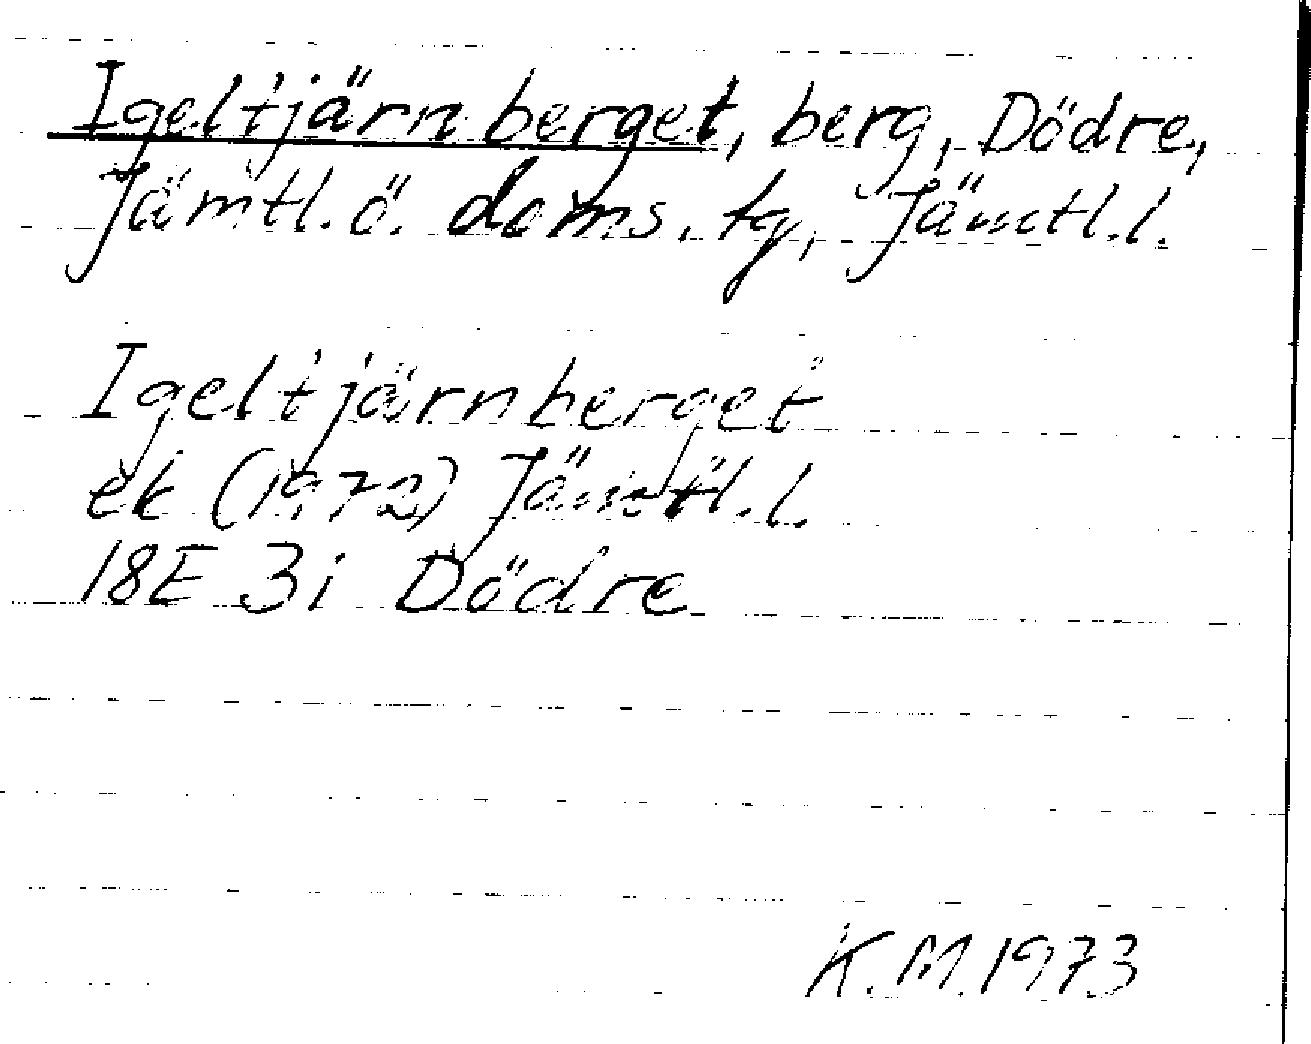 Igeltjärnberget, berg, Dödre,
Jämtl. ö. doms. tg, Jämtl. l.
Igeltjärnberget
ek (1972) Jämtl. l.
18E 3i Dödre
K.M. 1973